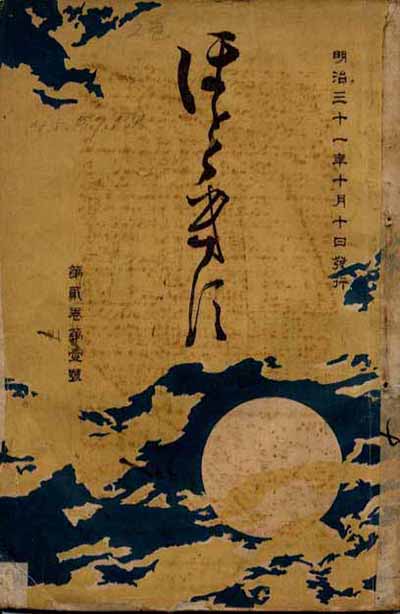 明治三十一年十月十日發行
ほとゝぎす
第貳卷第壹號